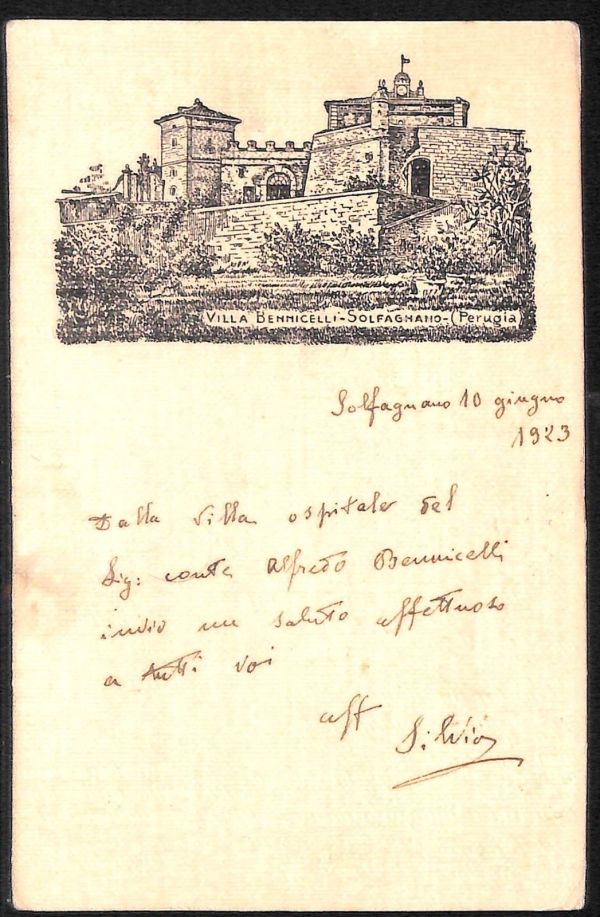 VILLA BENNICELLI-SOLFAGNANO-(Perugia)
Solfagnano 10 giugno
1923
Dalla villa ospitale del
Sig: conte Alfredo Bennicelli
invio un saluto affettuoso
a tutti voi
aff
Silvio